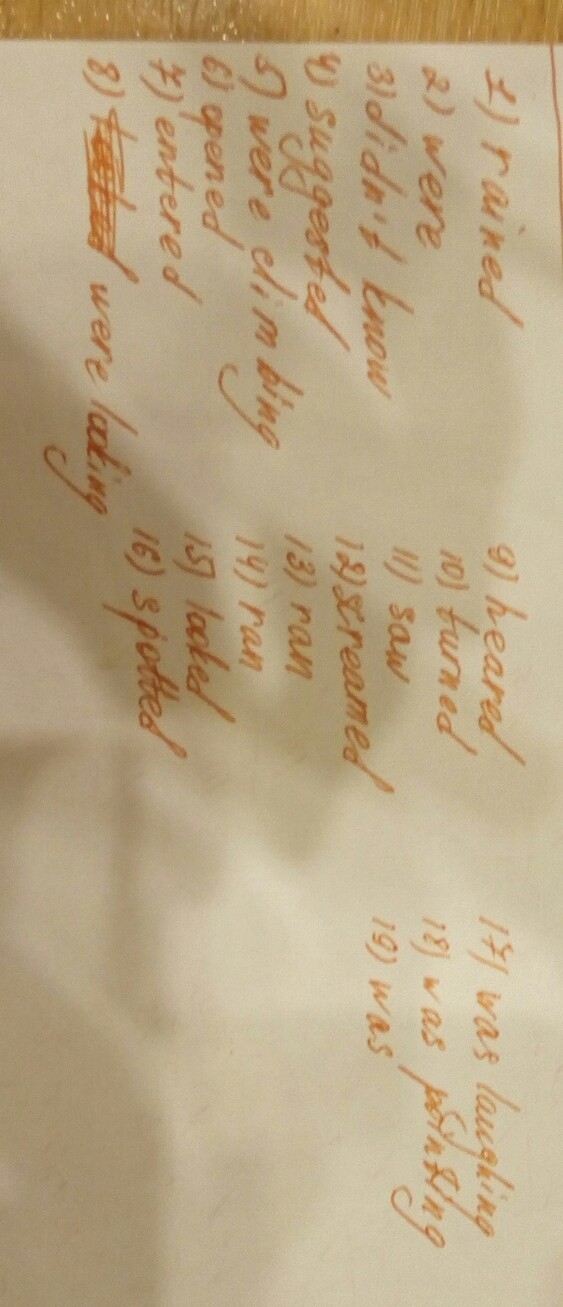 1) rained
2) were
3) didn't know
4) suggested
5) were climbing
6) opened
7) entered
8) were looking
9) heared
10) turned
11) saw
12) screamed
13) ran
14) ran
15) looked
16) spotted
17) was laughing
18) was pointing
19) was